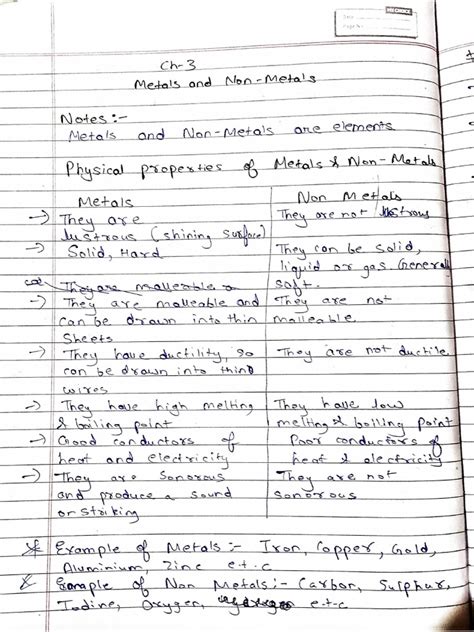 Date
Page No.
Ch-3
Metals and Non-Metals
Notes :-
Metals and Non-Metals are elements
Physical properties of Metals & Non-Metals
Metals
Non Metals
→ They are
lustrous (shining surface)
They are not lustrous
→ Solid, Hard
They can be Solid,
liquid or gas. General
soft.
They are malleable
→ They are malleable and
can be drawn into thin
Sheets
They are not
malleable
→ They have ductility, so
can be drawn into thin
wires
They are not ductile
→ They have high melting
& boiling point
They have low
melting & boiling point
→ Good conductors of
heat and electricity
Poor conductors of
heat & electricity
→ They are Sonorous
and produce a sound
on striking
They are not
sonorous
* Example of Metals :- Iron, Copper, Gold,
Aluminium, Zinc e.t.c
* Example of Non Metals :- Carbon, Sulphur,
Iodine, Oxygen, e.t.c